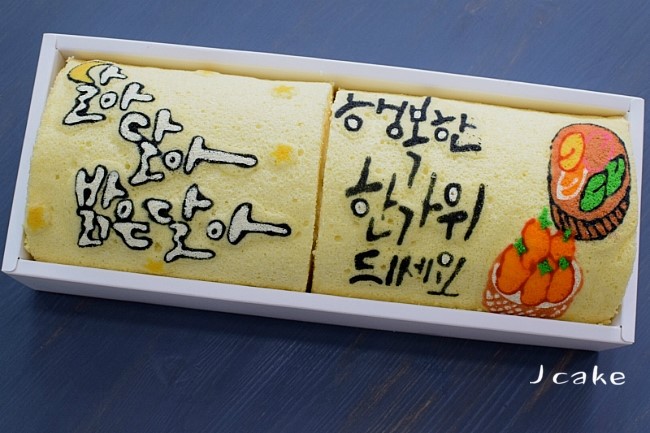 달아
달아
밝은 달아
행복한
한가위
되세요
Jcake